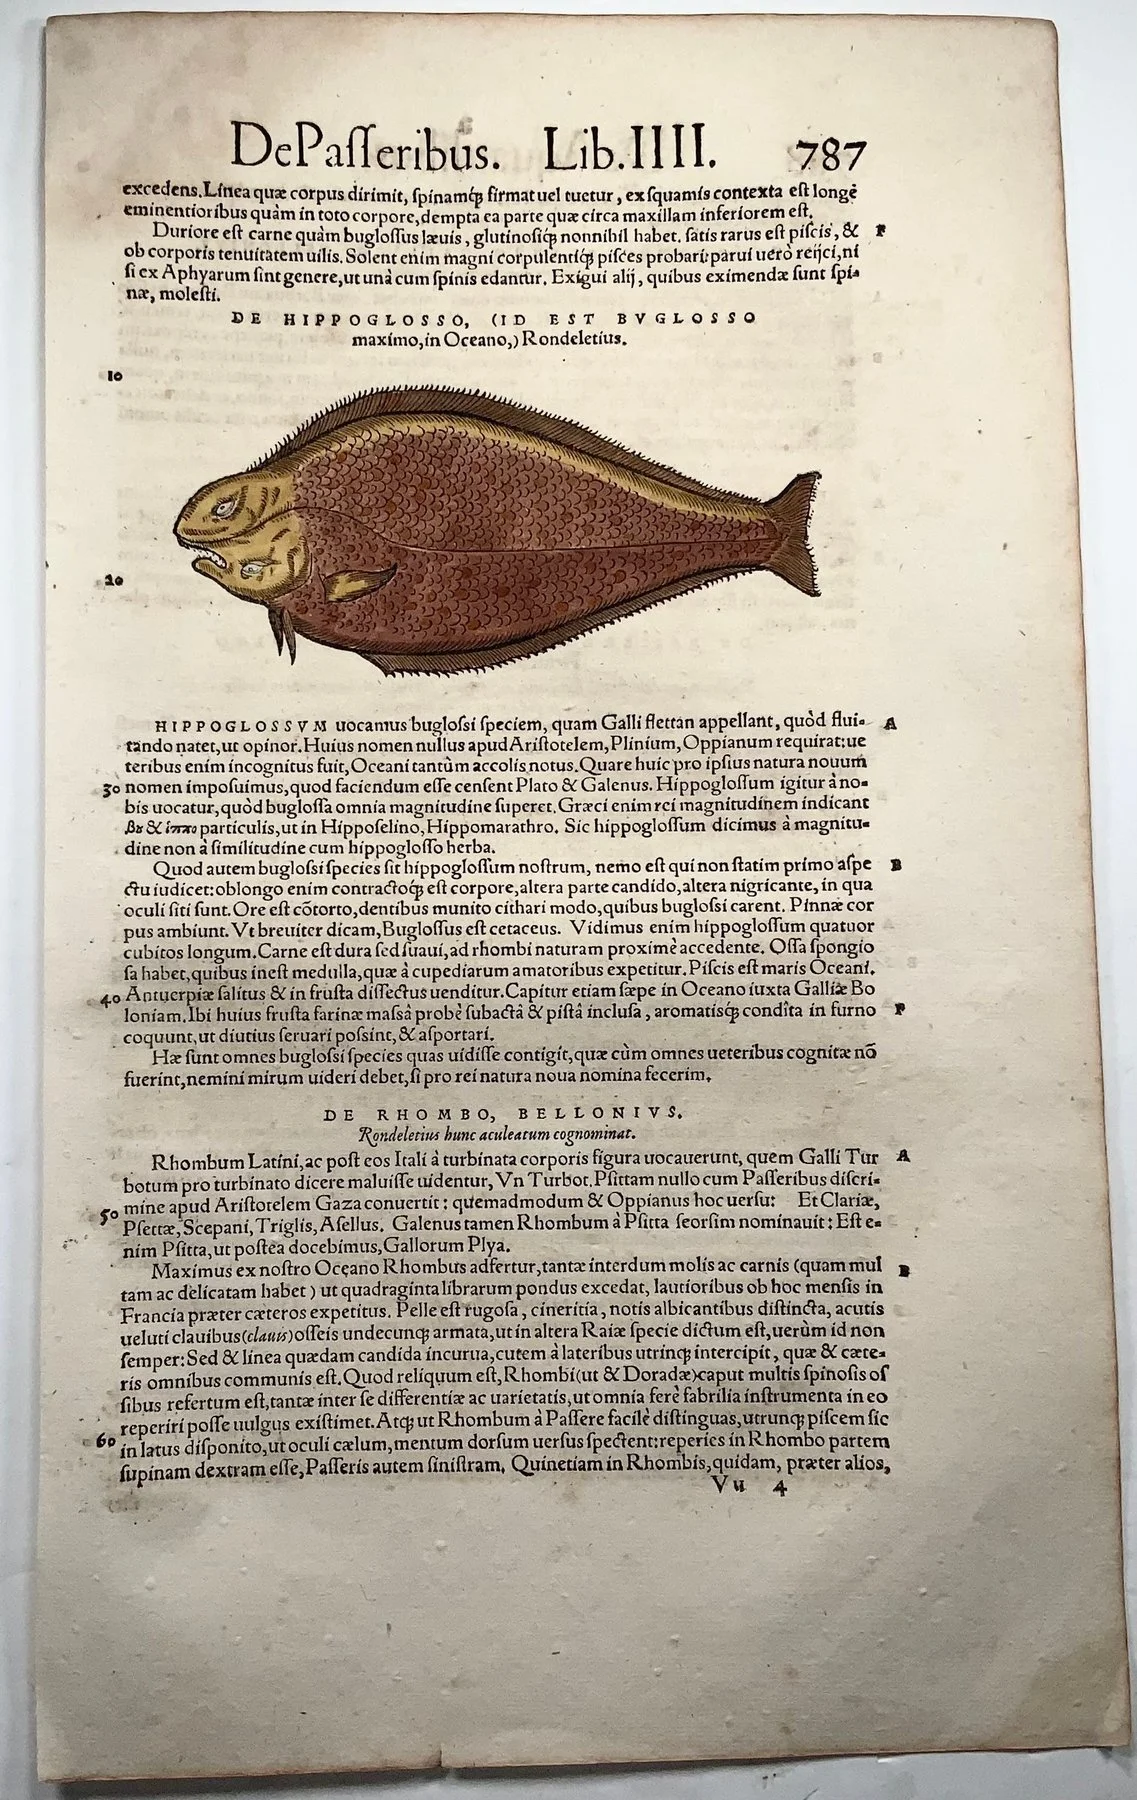 De Paſſeribus. Lib. IIII. 787
excedens. Linea quæ corpus dirimit, ſpinamq́; firmat uel tuetur, ex ſquamis contexta eſt longè
eminentioribus quàm in toto corpore, dempta ea parte quæ circa maxillam inferiorem eſt.
Duriore eſt carne quàm bugloſſus læuis, glutinoſiq́; nonnihil habet. ſatis rarus eſt piſcis, & F
ob corporis tenuitatem uilis. Solent enim magni corpulentiq́; piſces probari: parui uerò reijci, ni
ſi ex Aphyarum ſint genere, ut unà cum ſpinis edantur. Exigui alij, quibus eximendæ ſunt ſpi-
næ, moleſti.
DE HIPPOGLOSSO, (ID EST BVGLOSSO
maximo, in Oceano,) Rondeletius.
10
20
HIPPOGLOSSVM uocamus bugloſſi ſpeciem, quam Galli flettan appellant, quòd flui- A
tando natet, ut opinor. Huius nomen nullus apud Ariſtotelem, Plinium, Oppianum requirat: ue
teribus enim incognitus fuit, Oceani tantùm accolis notus. Quare huic pro ipſius natura nouum
30 nomen impoſuimus, quod faciendum eſſe cenſent Plato & Galenus. Hippogloſſum igitur à no-
bis uocatur, quòd bugloſſa omnia magnitudine ſuperet. Græci enim rei magnitudinem indicant
βȣ & ἱππο particulis, ut in Hippoſelino, Hippomarathro. Sic hippogloſſum dicimus à magnitu-
dine non à ſimilitudine cum hippogloſſo herba.
Quod autem bugloſſi ſpecies ſit hippogloſſum noſtrum, nemo eſt qui non ſtatim primo aſpe B
ctu iudicet: oblongo enim contractoq́; eſt corpore, altera parte candido, altera nigricante, in qua
oculi ſiti ſunt. Ore eſt cõtorto, dentibus munito cithari modo, quibus bugloſſi carent. Pinnæ cor
pus ambiunt. Vt breuiter dicam, Bugloſſus eſt cetaceus. Vidimus enim hippogloſſum quatuor
cubitos longum. Carne eſt dura ſed ſuaui, ad rhombi naturam proximè accedente. Oſſa ſpongio
ſa habet, quibus ineſt medulla, quæ à cupediarum amatoribus expetitur. Piſcis eſt maris Oceani.
40 Antuerpiæ ſalitus & in fruſta diſſectus uenditur. Capitur etiam ſæpe in Oceano iuxta Galliæ Bo
loniam. Ibi huius fruſta farinæ maſsâ probè ſubactâ & piſtâ incluſa, aromatisq́; condîta in furno F
coquunt, ut diutius ſeruari poſsint, & aſportari.
Hæ ſunt omnes bugloſſi ſpecies quas uidiſſe contigit, quæ cùm omnes ueteribus cognitæ nõ
fuerint, nemini mirum uideri debet, ſi pro rei natura noua nomina fecerim.
DE RHOMBO, BELLONIVS.
Rondeletius hunc aculeatum cognominat.
Rhombum Latini, ac poſt eos Itali à turbinata corporis figura uocauerunt, quem Galli Tur A
botum pro turbinato dicere maluiſſe uidentur, Vn Turbot. Pſittam nullo cum Paſſeribus diſcri-
mine apud Ariſtotelem Gaza conuertit: quemadmodum & Oppianus hoc uerſu: Et Clariæ,
50 Pſettæ, Scepani, Triglis, Aſellus. Galenus tamen Rhombum à Pſitta ſeorſim nominauit: Eſt e-
nim Pſitta, ut poſtea docebimus, Gallorum Plya.
Maximus ex noſtro Oceano Rhombus adfertur, tantæ interdum molis ac carnis (quam mul B
tam ac delicatam habet) ut quadraginta librarum pondus excedat, lautioribus ob hoc menſis in
Francia præter cæteros expetitus. Pelle eſt rugoſa, cineritia, notis albicantibus diſtincta, acutis
ueluti clauibus (clauis) oſſeis undecunq; armata, ut in altera Raiæ ſpecie dictum eſt, uerùm id non
ſemper: Sed & linea quædam candida incurua, cutem à lateribus utrinq; intercipit, quæ & cæte-
ris omnibus communis eſt. Quod reliquum eſt, Rhombi (ut & Doradæ) caput multis ſpinoſis oſ
ſibus refertum eſt, tantæ inter ſe differentiæ ac uarietatis, ut omnia ferè fabrilia inſtrumenta in eo
reperiri poſſe uulgus exiſtimet. Atq; ut Rhombum à Paſſere facilè diſtinguas, utrunq; piſcem ſic
60 in latus diſponito, ut oculi cælum, mentum dorſum uerſus ſpectent: reperies in Rhombo partem
ſupinam dextram eſſe, Paſſeris autem ſiniſtram. Quinetiam in Rhombis, quidam, præter alios,
Vu 4